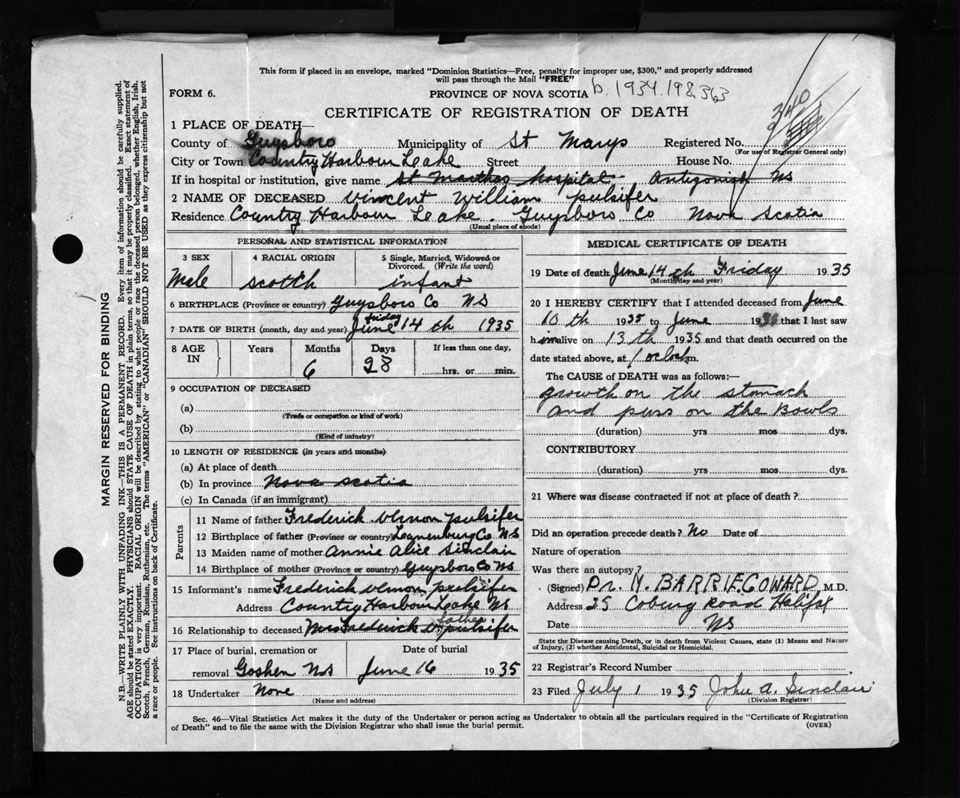 This form if placed in an envelope, marked "Dominion Statistics—Free, penalty for improper use, $300," and properly addressed
will pass through the Mail "FREE"
FORM 6.
PROVINCE OF NOVA SCOTIA b. 1934.198363
CERTIFICATE OF REGISTRATION OF DEATH
1 PLACE OF DEATH—
County of Guysboro Municipality of St Marys Registered No.
(For use of Registrar General only)
City or Town Country Harbour Leake Street House No.
If in hospital or institution, give name St Marthas hospital Antigonish NS
2 NAME OF DECEASED Vincent William pulsifer
Residence Country Harbour Leake. Guysboro Co Nova Scotia
(Usual place of abode)
PERSONAL AND STATISTICAL INFORMATION
3 SEX 4 RACIAL ORIGIN 5 Single, Married, Widowed or Divorced. (Write the word)
Male scotth infant
6 BIRTHPLACE (Province or country) Guysboro Co NS
7 DATE OF BIRTH (month, day and year) friday June 14 th 1935
8 AGE IN Years Months Days If less than one day,
6 28 hrs. or min.
9 OCCUPATION OF DECEASED
(a)
(Trade or occupation or kind of work)
(b)
(Kind of industry)
10 LENGTH OF RESIDENCE (in years and months)
(a) At place of death
(b) In province Nova scotia
(c) In Canada (if an immigrant)
Parents
11 Name of father Frederick Vernon pulsifer
12 Birthplace of father (Province or country) Leunenburg Co NS
13 Maiden name of mother Annie Alice Sinclair
14 Birthplace of mother (Province or country) Guysboro Co NS
15 Informant's name Frederick Vernon pulsifer
Address Country Harbour Leake NS
16 Relationship to deceased Mrs Frederick V pulsifer father
17 Place of burial, cremation or removal Goshen NS
Date of burial June 16 1935
18 Undertaker None
(Name and address)
MEDICAL CERTIFICATE OF DEATH
19 Date of death June 14 th Friday 1935
(Month, day and year)
20 I HEREBY CERTIFY that I attended deceased from June
10 th 1935 to June 193 that I last saw
h im alive on 13 th 1935 and that death occurred on the
date stated above, at 1 oclock m.
The CAUSE of DEATH was as follows:—
growth on the stomach
and puss on the Bowls
(duration) yrs mos dys.
CONTRIBUTORY
(duration) yrs mos dys.
21 Where was disease contracted if not at place of death?
Did an operation precede death? No Date of
Nature of operation
Was there an autopsy?
(Signed) Dr. M. BARRIE COWARD M.D.
Address 25 Coburg Road Halifax
Date NS
State the Disease causing Death, or in death from Violent Causes, state (1) Means and Nature
of Injury, (2) whether Accidental, Suicidal or Homicidal.
22 Registrar's Record Number
23 Filed July 1 1935 John A. Sinclair
(Division Registrar)
Sec. 46—Vital Statistics Act makes it the duty of the Undertaker or person acting as Undertaker to obtain all the particulars required in the "Certificate of Registration
of Death" and to file the same with the Division Registrar who shall issue the burial permit.
(OVER)
MARGIN RESERVED FOR BINDING
N.B.—WRITE PLAINLY WITH UNFADING INK—THIS IS A PERMANENT RECORD. Every item of information should be carefully supplied.
AGE should be stated EXACTLY. PHYSICIANS should STATE CAUSE OF DEATH in plain terms, so that it may be properly classified. Exact statement of
OCCUPATION is very important. RACIAL ORIGIN will be described by stating to what people or race the deceased person belonged, whether English, Irish,
Scotch, French, German, Russian, Ruthenian, etc. The terms "AMERICAN" or "CANADIAN" SHOULD NOT BE USED as they express citizenship but not
a race or people. See instructions on back of Certificate.